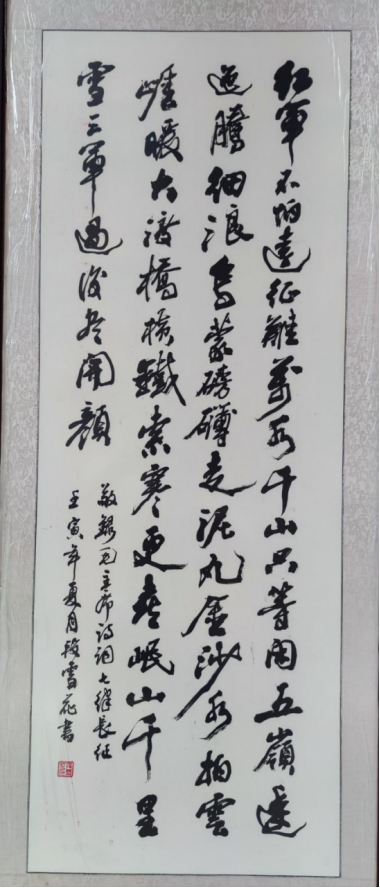 红军不怕遠征難萬水千山只等閑五嶺逶
迤騰细浪烏蒙磅礴走泥丸金沙水拍雲
崖暖大渡橋橫鐵索寒更喜岷山千里
雪三軍過後盡開顏
敬錄毛主席诗词七律長征
壬寅年夏月 雪花書